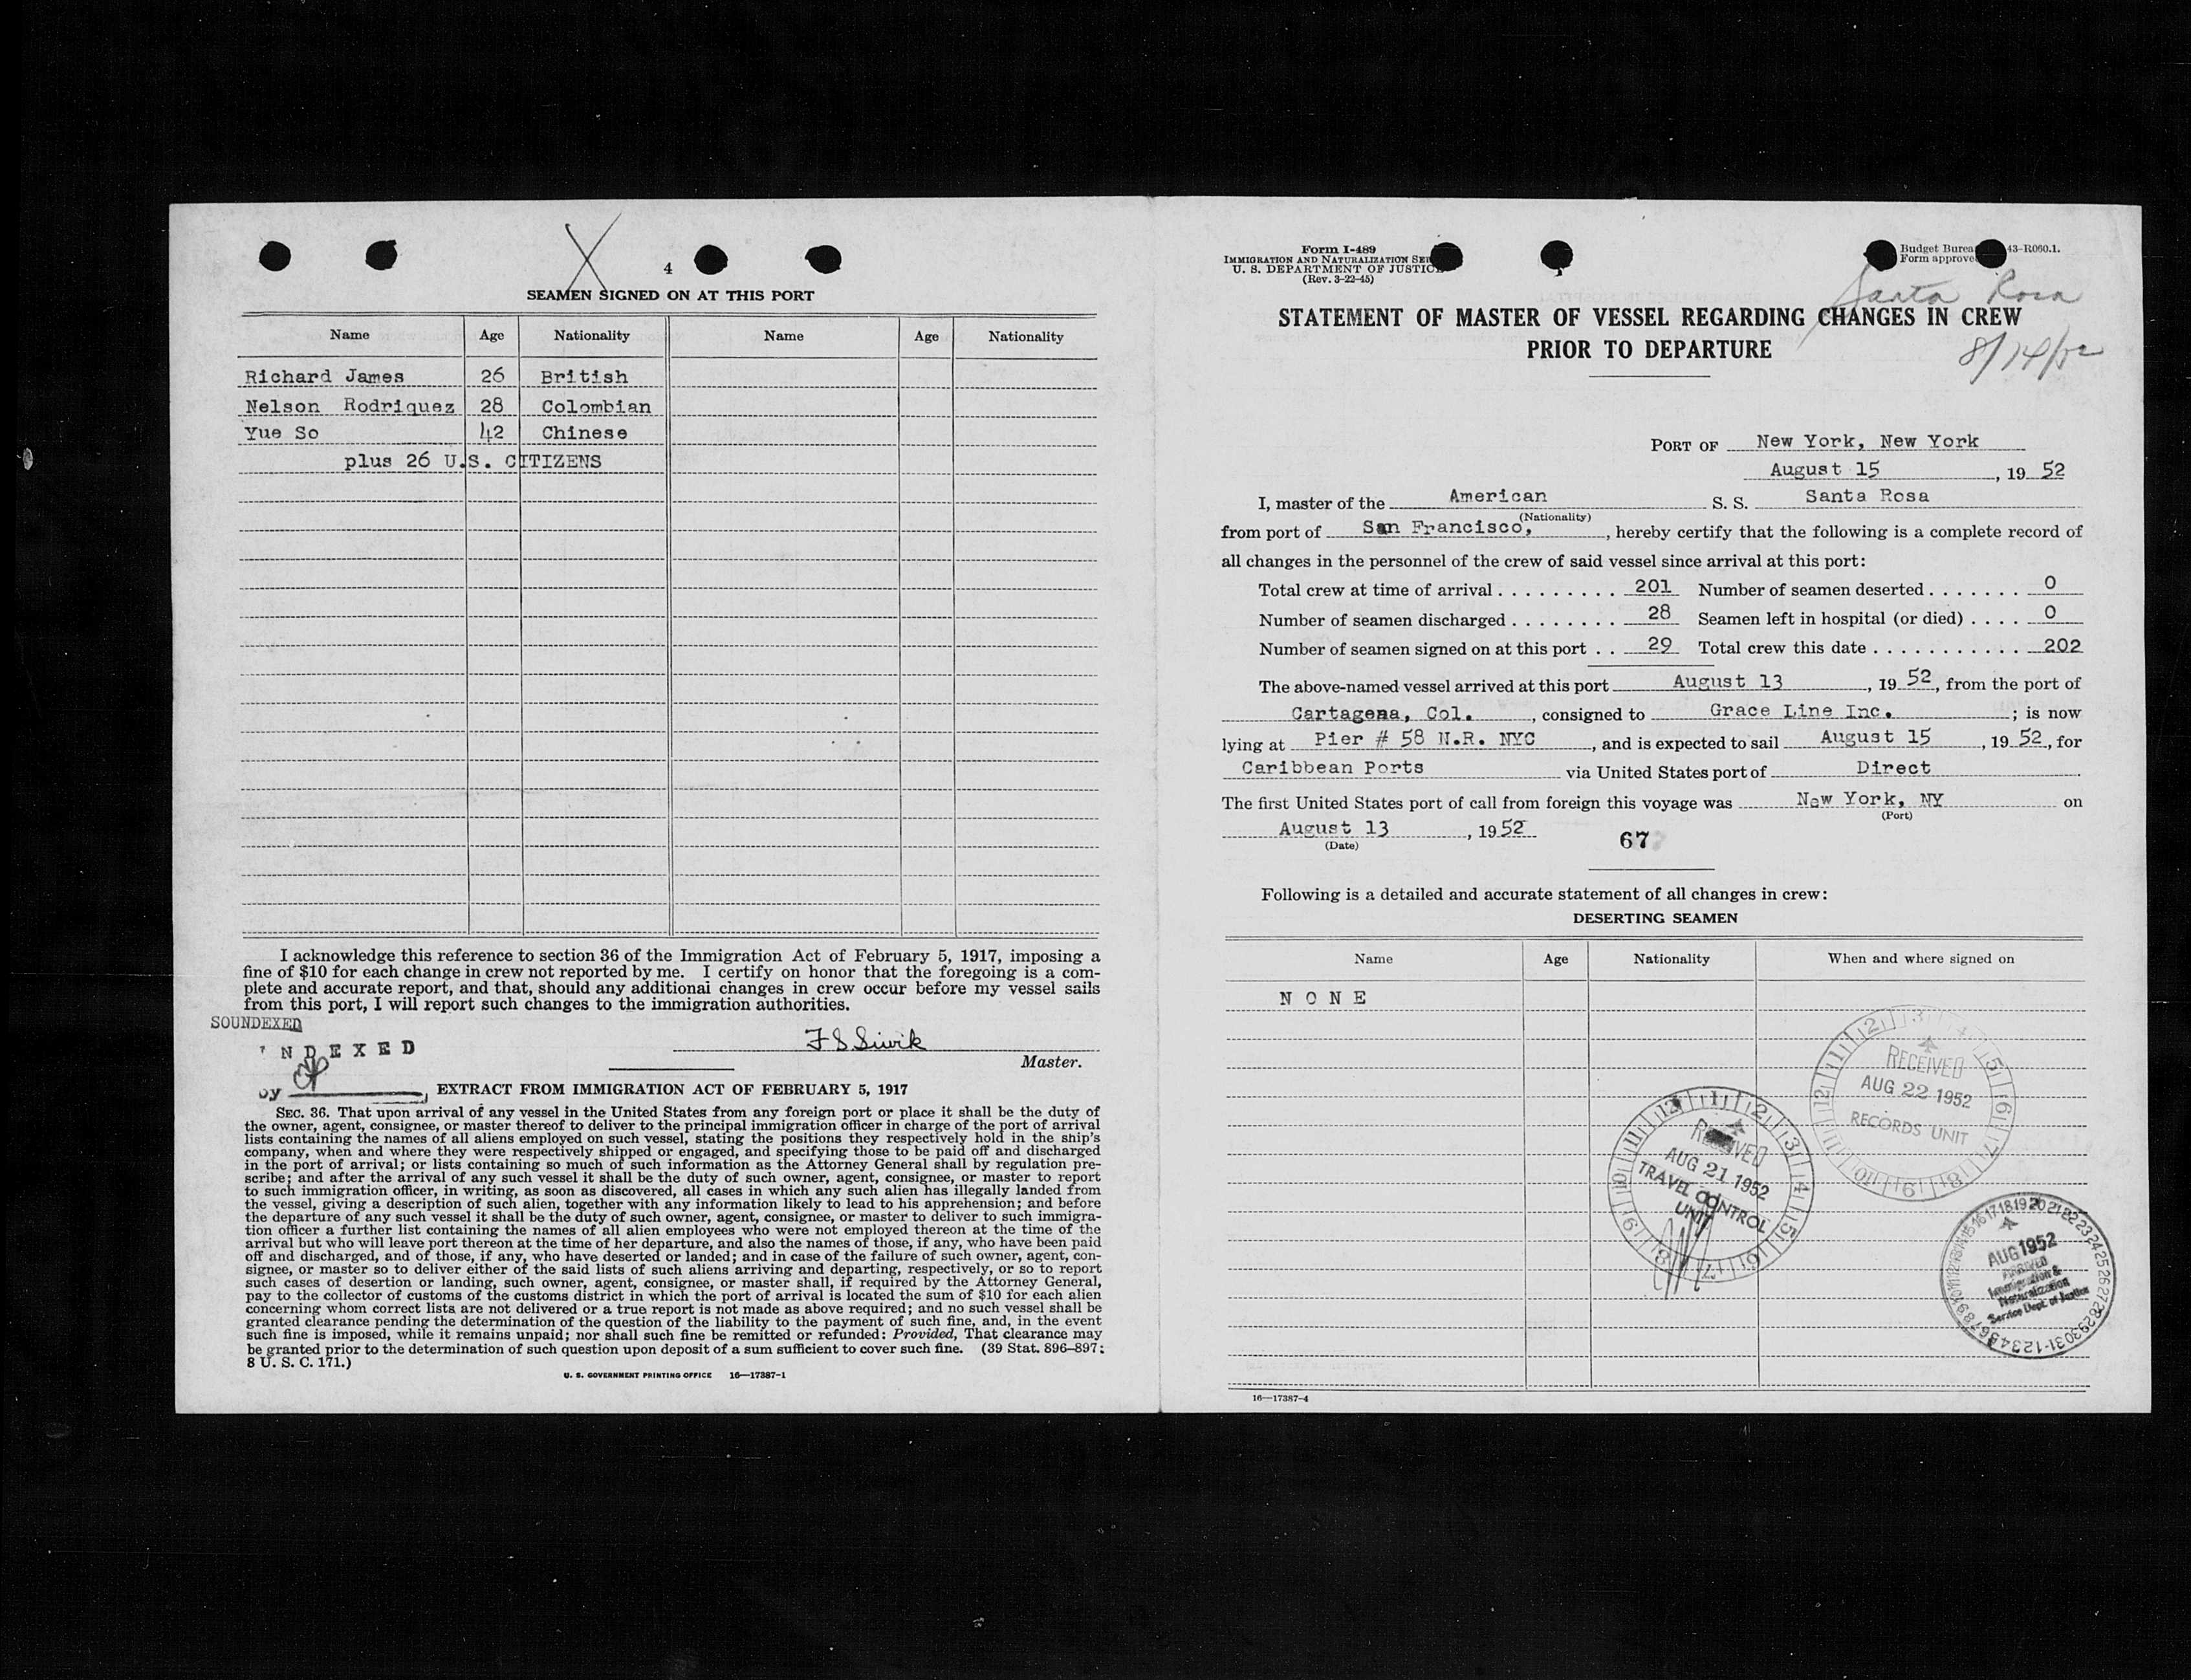 4
SEAMEN SIGNED ON AT THIS PORT
Name Age Nationality Name Age Nationality
Richard James 26 British
Nelson Rodriquez 28 Colombian
Yue So 42 Chinese
plus 26 U.S. CITIZENS
I acknowledge this reference to section 36 of the Immigration Act of February 5, 1917, imposing a
fine of $10 for each change in crew not reported by me. I certify on honor that the foregoing is a com-
plete and accurate report, and that, should any additional changes in crew occur before my vessel sails
from this port, I will report such changes to the immigration authorities.
SOUNDEXED
NDEXED
F S Sivik
Master.
by
EXTRACT FROM IMMIGRATION ACT OF FEBRUARY 5, 1917
SEC. 36. That upon arrival of any vessel in the United States from any foreign port or place it shall be the duty of
the owner, agent, consignee, or master thereof to deliver to the principal immigration officer in charge of the port of arrival
lists containing the names of all aliens employed on such vessel, stating the positions they respectively hold in the ship's
company, when and where they were respectively shipped or engaged, and specifying those to be paid off and discharged
in the port of arrival; or lists containing so much of such information as the Attorney General shall by regulation pre-
scribe; and after the arrival of any such vessel it shall be the duty of such owner, agent, consignee, or master to report
to such immigration officer, in writing, as soon as discovered, all cases in which any such alien has illegally landed from
the vessel, giving a description of such alien, together with any information likely to lead to his apprehension; and before
the departure of any such vessel it shall be the duty of such owner, agent, consignee, or master to deliver to such immigra-
tion officer a further list containing the names of all alien employees who were not employed thereon at the time of the
arrival but who will leave port thereon at the time of her departure, and also the names of those, if any, who have been paid
off and discharged, and of those, if any, who have deserted or landed; and in case of the failure of such owner, agent, con-
signee, or master so to deliver either of the said lists of such aliens arriving and departing, respectively, or so to report
such cases of desertion or landing, such owner, agent, consignee, or master shall, if required by the Attorney General,
pay to the collector of customs of the customs district in which the port of arrival is located the sum of $10 for each alien
concerning whom correct lists are not delivered or a true report is not made as above required; and no such vessel shall be
granted clearance pending the determination of the question of the liability to the payment of such fine, and, in the event
such fine is imposed, while it remains unpaid; nor shall such fine be remitted or refunded: Provided, That clearance may
be granted prior to the determination of such question upon deposit of a sum sufficient to cover such fine. (39 Stat. 896–897;
8 U. S. C. 171.)
U. S. GOVERNMENT PRINTING OFFICE 16—17387-1
Form I-489
IMMIGRATION AND NATURALIZATION SER
U. S. DEPARTMENT OF JUSTICE
(Rev. 3-22-45)
Budget Burea 43-R060.1.
Form approve
Santa Rosa
8/14/52
STATEMENT OF MASTER OF VESSEL REGARDING CHANGES IN CREW
PRIOR TO DEPARTURE
PORT OF New York, New York
August 15, 19 52
I, master of the American S. S. Santa Rosa
(Nationality)
from port of San Francisco, , hereby certify that the following is a complete record of
all changes in the personnel of the crew of said vessel since arrival at this port:
Total crew at time of arrival . . . . . . . . . 201 Number of seamen deserted . . . . . . . 0
Number of seamen discharged . . . . . . . . 28 Seamen left in hospital (or died) . . . . 0
Number of seamen signed on at this port . . 29 Total crew this date . . . . . . . . . . . 202
The above-named vessel arrived at this port August 13, 19 52, from the port of
Cartagena, Col. , consigned to Grace Line Inc. ; is now
lying at Pier # 58 N.R. NYC , and is expected to sail August 15 , 19 52, for
Caribbean Ports via United States port of Direct
The first United States port of call from foreign this voyage was New York, NY on
(Port)
August 13 , 19 52
(Date)
67
Following is a detailed and accurate statement of all changes in crew:
DESERTING SEAMEN
Name Age Nationality When and where signed on
N O N E
RECEIVED
AUG 22 1952
RECORDS UNIT
RECEIVED
AUG 21 1952
TRAVEL CONTROL
UNIT
AUG 1952
ARRIVED
Immigration &
Naturalization
Service Dept. of Justice
16—17387-4